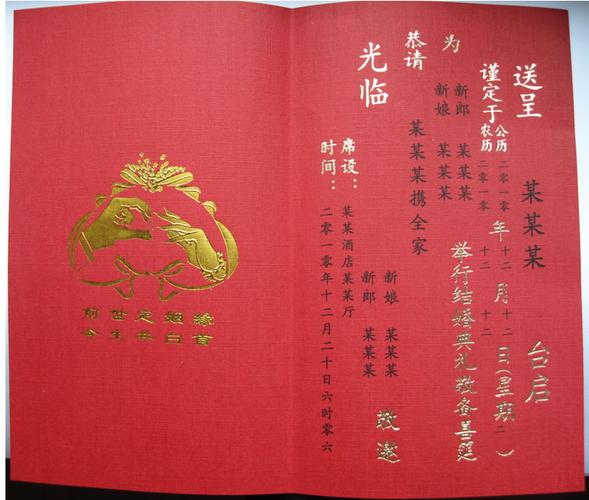 送呈 某某某 台启
谨定于 公历 二零一零 年 十二 月 十二 日(星期二)
农历 二零一零 十二 十二
为 新郎 某某某 举行结婚典礼敬备喜筵
新娘 某某某
恭请 某某某携全家
光临
新娘 某某某
新郎 某某某 敬邀
席设：某某酒店某某厅
时间：二零一零年十二月二十日六时零六
前世定姻缘
今生共白首